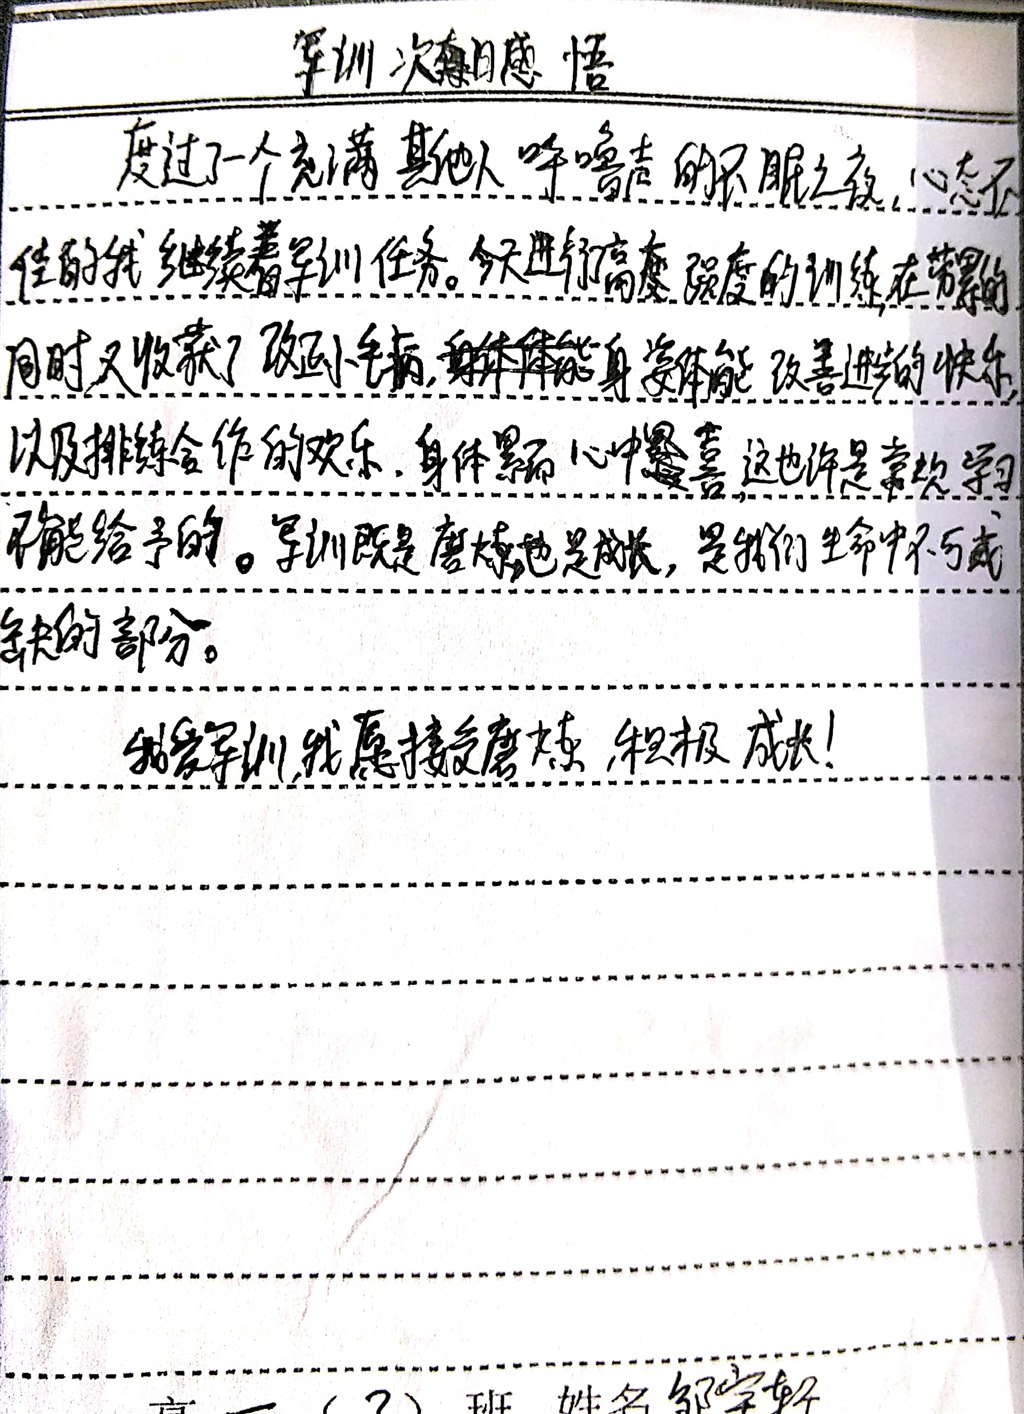 军训次日感悟
度过了一个充满其他人呼噜声的不眠之夜,心态不
佳的我继续着军训任务。今天进行高度强度的训练,在劳累的
同时又收获了改正小毛病,身姿体能改善进步的快乐,
以及排练合作的欢乐.身体累而心中喜,这也许是常规学习
不能给予的。军训既是磨炼,也是成长,是我们生命中不可或
缺的部分。
我爱军训,我愿接受磨炼,积极成长!
高一(2)班 姓名邹宇轩